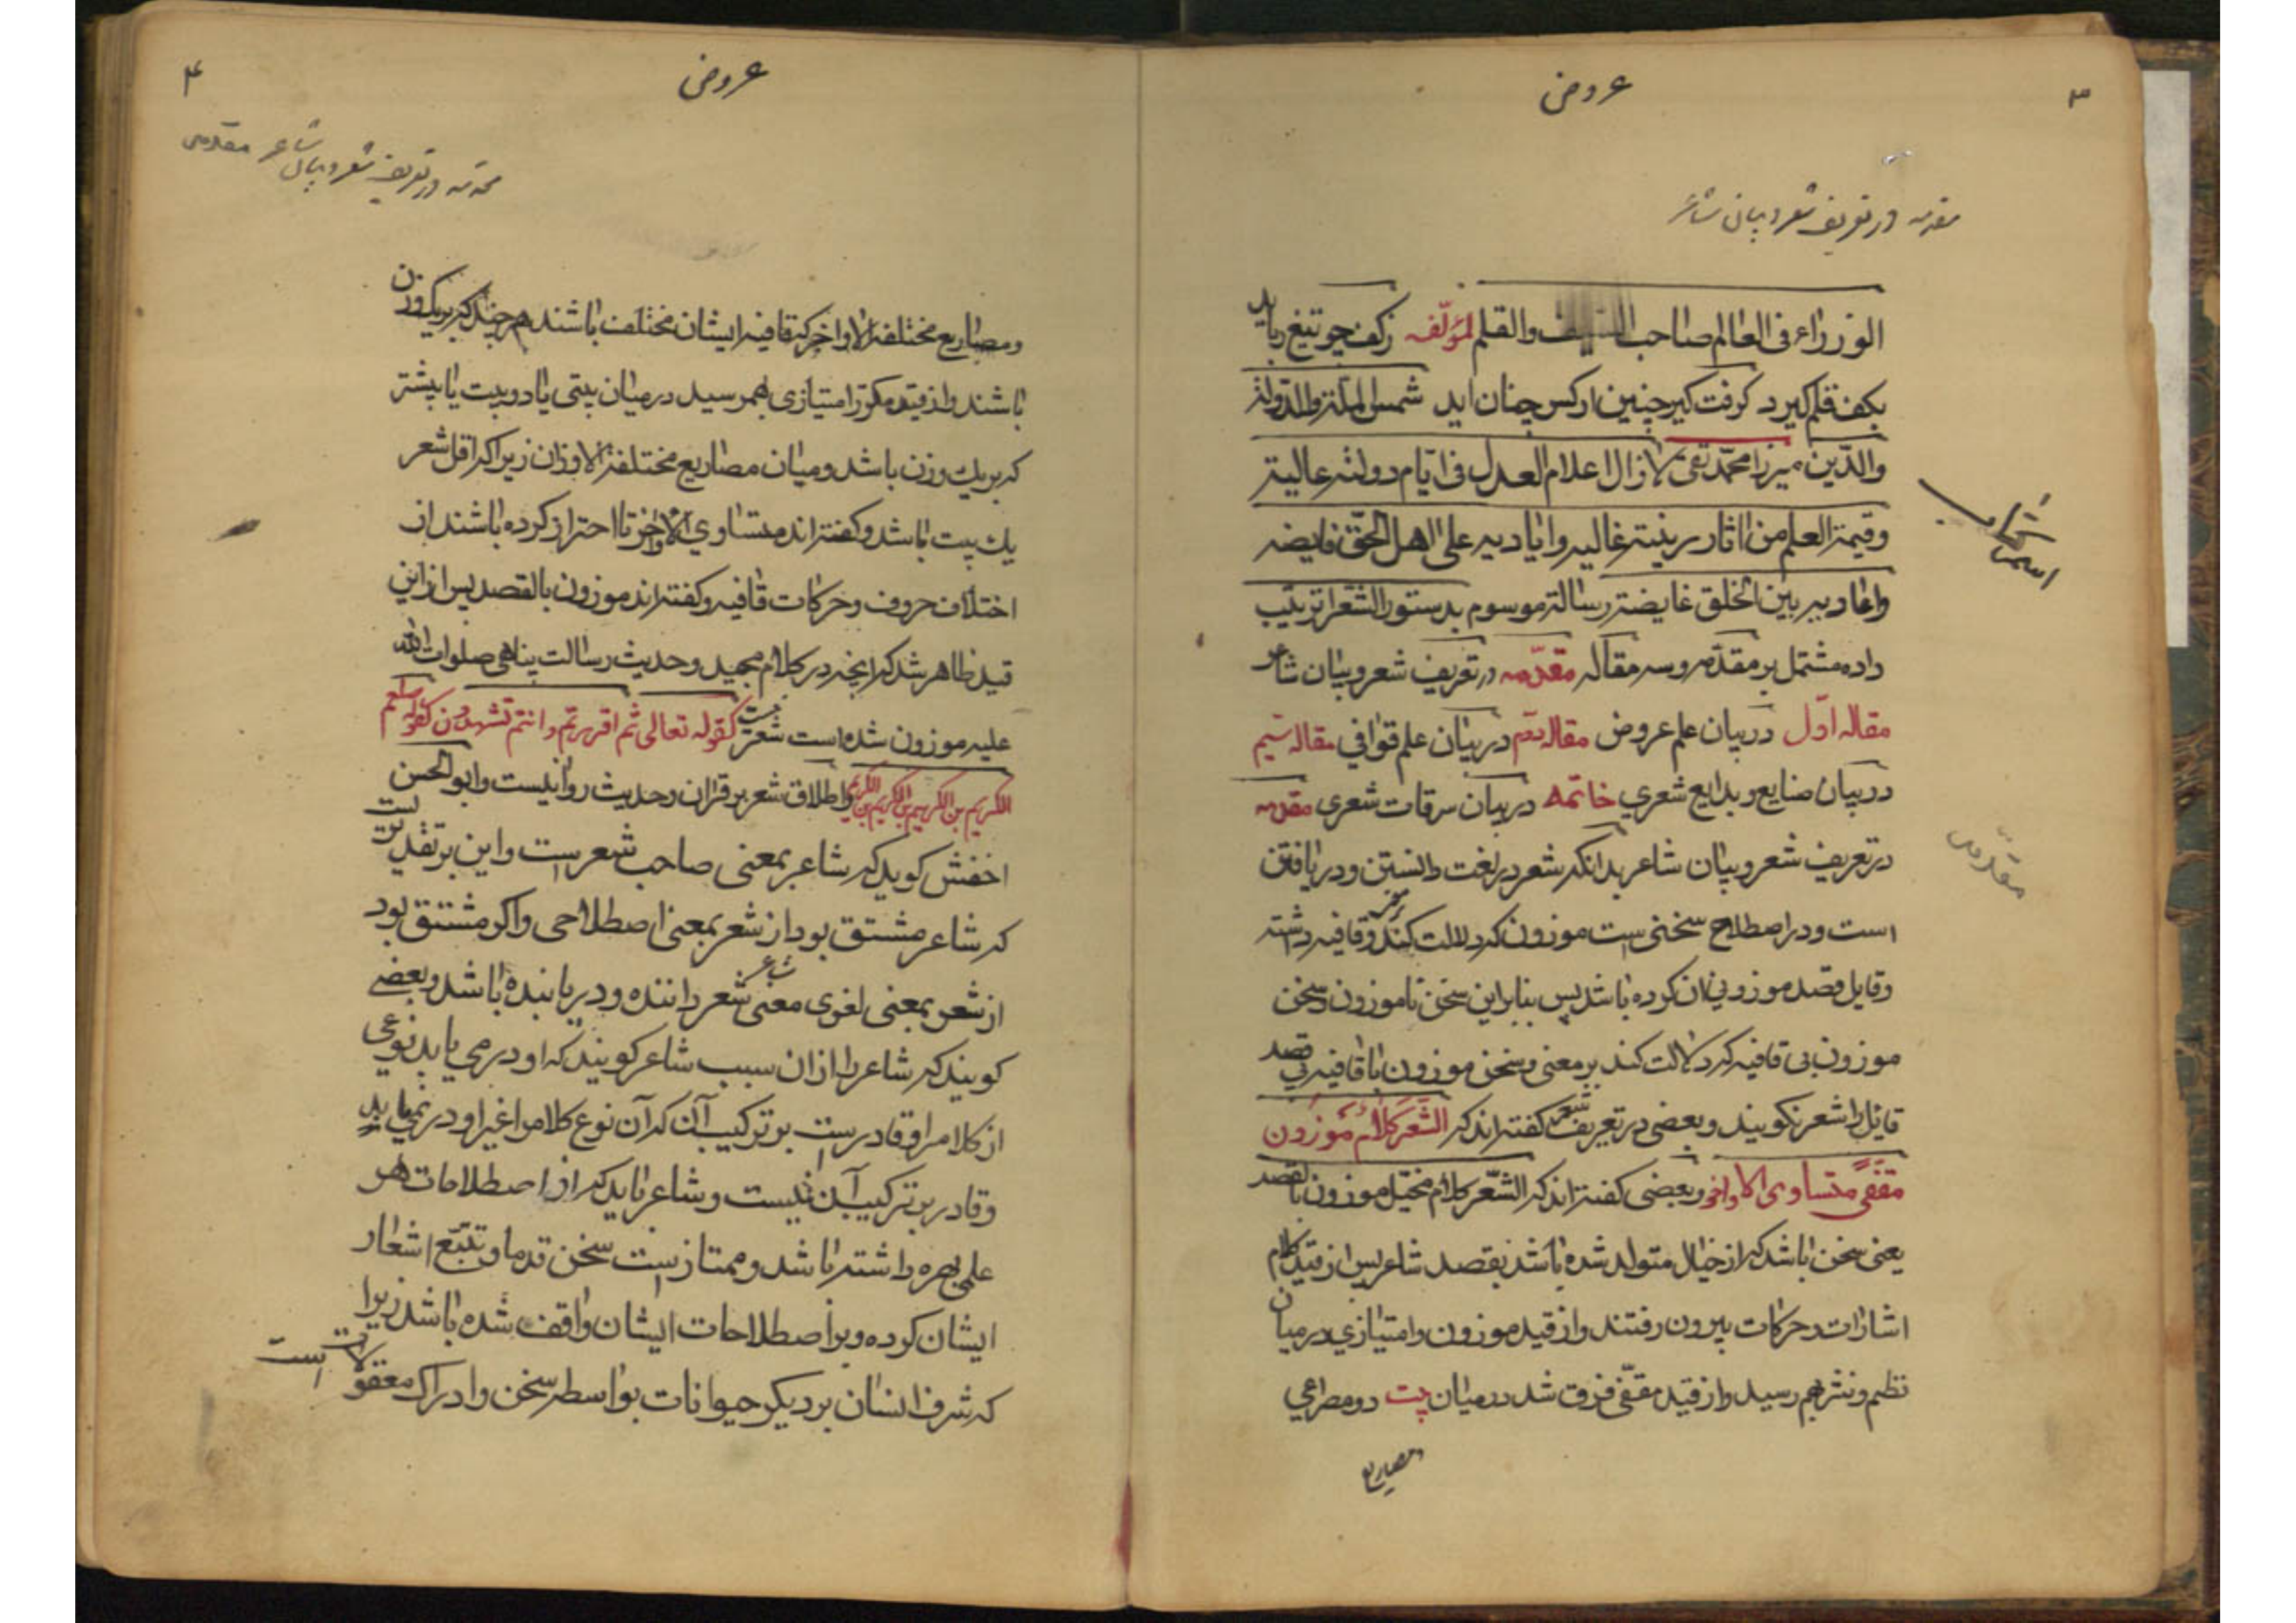 ۳
عروض
مقدمه در تعریف شعر و بیان شاعر
الوزراء فی العالم صاحب السیف والقلم لمؤلّفه زکف چو تیغ رباید
بکف قلم کیرد کرفت کیر چنین ارکس چنان اید شمس الملة والدولة
والدّین میرزا محمّد تقی لازال اعلام العدل فی ایّام دولته عالیة
وقیمة العلم من اثار تربیته غالیه وایادیه علی اهل الحقّ فایضه
واعادیه بین الخلق غایضة رسالة موسوم بدستور الشعرا ترتیب
داده مشتمل بر مقدّمه و سه مقاله مقدّمه در تعریف شعر و بیان شاعر
مقاله اوّل در بیان علم عروض مقاله دوّم در بیان علم قوافی مقاله سیم
در بیان صنایع و بدایع شعری خاتمه در بیان سرقات شعری مقدمه
در تعریف شعر و بیان شاعر بدانکه شعر در لغت دانستن و دریافتن
است و در اصطلاح سخنی است موزون که دلالت کند بر معنی و قافیه داشته
وقایل قصد موزونی ان کرده باشد پس بنابراین سخن ناموزون و سخن
موزون بی قافیه که دلالت کند بر معنی و سخن موزون با قافیه بی قصد
قایل را شعر نکویند و بعضی در تعریف شعر کفته اند که الشّعر کلامٌ موزون
مقفّیً متساوی الاواخر و بعضی کفته اند که الشّعر کلام مخیّل موزون بالقصد
یعنی سخن باشد که از خیال متولد شده باشد بقصد شاعر پس از قید کلام
اشارات و حرکات بیرون رفتند و از قید موزون امتیازی در میان
نظم و نثر بهم رسید و از قید مقفّی فرق شد در میان بیت دو مصراعی
ومصاریع
اسم کتاب
مقدمه
۴
عروض
مقدمه در تعریف شعر و بیان شاعر مقدمه
ومصاریع مختلفة الاواخر که قافیه ایشان مختلف باشند هرچند که بر یک وزن
باشند و از قید مکور امتیازی بهم رسید در میان بیتی یا دو بیت یا بیشتر
که بر یک وزن باشد و میان مصاریع مختلفة الاوزان زیرا که اقل شعر
یک بیت باشد و کفته اند متساوی الاواخر تا احتراز کرده باشند از
اختلاف حروف و حرکات قافیه و کفته اند موزون بالقصد پس از این
قید ظاهر شد که انچه در کلام مجید و حدیث رسالت پناهی صلوات الله
علیه موزون شده است شعر نیست کقوله تعالی ثم اقررتم وانتم تشهدون کقوله صلعم
الکریم بن الکریم بن الکریم بن الکریم و اطلاق شعر بر قران و حدیث روا نیست و ابو الحسن
اخفش کوید که شاعر بمعنی صاحب شعر است و این بر تقدیریست
که شاعر مشتق بود از شعر بمعنی اصطلاحی و اکر مشتق بود
از شعر بمعنی لغوی معنی شاعر داننده و دریابنده باشد و بعضی
کویند که شاعر را از ان سبب شاعر کویند که او در می یابد نوعی
از کلام را و قادر است بر ترکیب آن که آن نوع کلام را غیر او در نمی یابد
و قادر بر ترکیب آن نیست و شاعر باید که از اصطلاحات هر
علمی بهره داشته باشد و ممتاز است سخن قدما و تتبّع اشعار
ایشان کرده و بر اصطلاحات ایشان واقف شده باشد زیرا
که شرف انسان بر دیکر حیوانات بواسطه سخن و ادراک معقولات است